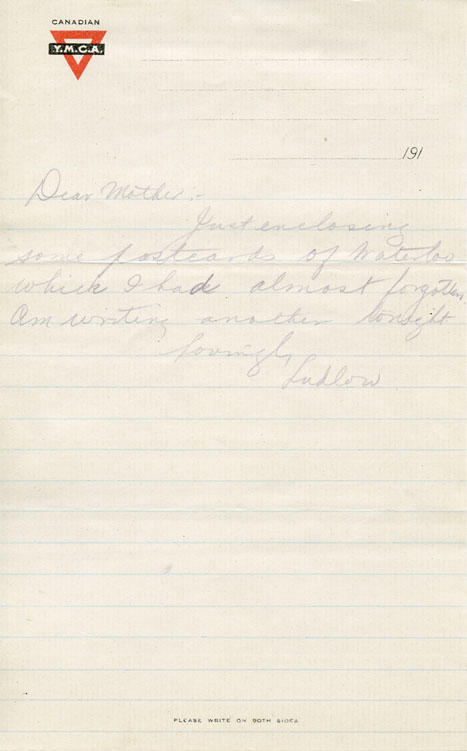 CANADIAN
Y.M.C.A.
191
Dear Mother:-
Just enclosing
some postcards of Waterloo
which I had almost forgotten,
Am writing another tonight
Lovingly
Ludlow
PLEASE WRITE ON BOTH SIDES